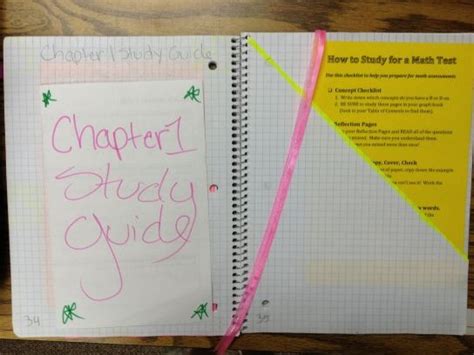 Chapter 1 Study Guide
Chapter 1
Study
Guide
34
How to Study for a Math Test
Use this checklist to help you prepare for math assessments.
Concept Checklist
1. Write down which concepts do you have a
2. BE SURE to study these pages in your graph book
(look to your Table of Contents to find them).
Reflection Pages
your Reflection Pages and READ all of the questions
Make sure you understand them
py, Cover, Check
of paper, copy down the example
words.
35